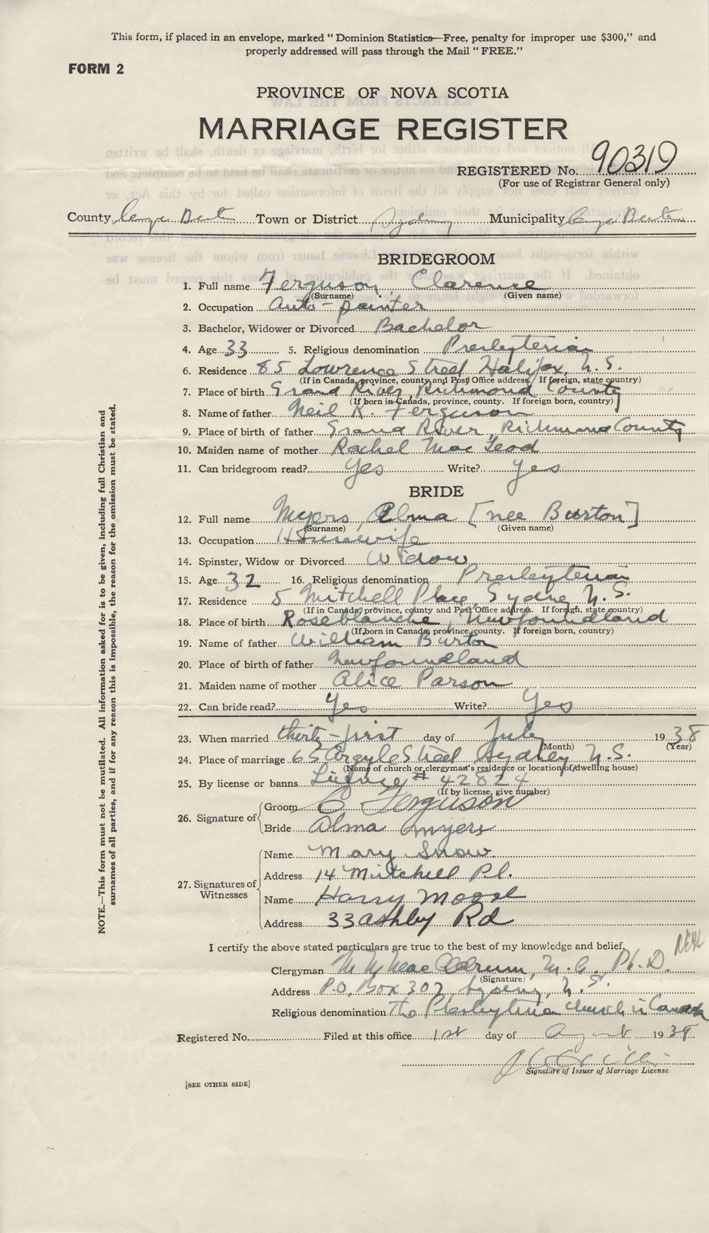 This form, if placed in an envelope, marked "Dominion Statistics—Free, penalty for improper use $300," and
properly addressed will pass through the Mail "FREE."
FORM 2
PROVINCE OF NOVA SCOTIA
MARRIAGE REGISTER
REGISTERED No. 90319
(For use of Registrar General only)
County Cape Breton Town or District Sydney Municipality Cape Breton
BRIDEGROOM
1. Full name Ferguson, Clarence
(Surname) (Given name)
2. Occupation Auto-painter
3. Bachelor, Widower or Divorced Bachelor
4. Age 33 5. Religious denomination Presbyterian
6. Residence 85 Lowrence Street Halifax, N.S.
(If in Canada, province, county and Post Office address. If foreign, state country)
7. Place of birth Grand River, Richmond County
(If born in Canada, province, county. If foreign born, country)
8. Name of father Neil K. Ferguson
9. Place of birth of father Grand River, Richmond County
10. Maiden name of mother Rachel MacLeod
11. Can bridegroom read? Yes Write? Yes
BRIDE
12. Full name Myers, Alma [nee Burton]
(Surname) (Given name)
13. Occupation Housewife
14. Spinster, Widow or Divorced Widow
15. Age 32 16. Religious denomination Presbyterian
17. Residence 5 Mitchell Place, Sydney N.S.
(If in Canada, province, county and Post Office address. If foreign, state country)
18. Place of birth Roseblanche, Newfoundland
(If born in Canada, province, county. If foreign born, country)
19. Name of father William Burton
20. Place of birth of father Newfoundland
21. Maiden name of mother Alice Parson
22. Can bride read? Yes Write? Yes
23. When married thirty-first day of July 1938
(Month) (Year)
24. Place of marriage 65 Argyle Street Sydney N.S.
(Name of church or clergyman's residence or location of dwelling house)
25. By license or banns License # 42824
(If by license, give number)
26. Signature of
Groom C Ferguson
Bride Alma Myers
27. Signatures of Witnesses
Name Mary Snow
Address 14 Mitchell Pl.
Name Harry
Address 33 Ashby Rd
I certify the above stated particulars are true to the best of my knowledge and belief.
Clergyman Ph.D.
(Signature)
Address P.O. Box 307 Sydney, N.S.
Religious denomination The Presbyterian Church in Canada
Registered No. Filed at this office 1st day of August 1938
Signature of Issuer of Marriage License
[SEE OTHER SIDE]
NOTE.—This form must not be mutilated. All information asked for is to be given, including full Christian and
surnames of all parties, and if for any reason this is impossible, the reason for the omission must be stated.